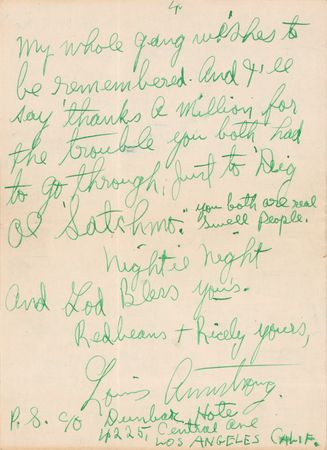 4
My whole gang wishes to
be remembered. And I'll
say 'thanks a million for
the trouble you both had
to go through, just to 'Dig
Ol 'Satchmo." you both are real
Swell People.
Nightie Night
And God Bless yous.
Redbeans + Ricely yours,
Louis Armstrong
P.S. c/o Dunbar Hotel
4225, Central ave
LOS ANGELES CALIF.